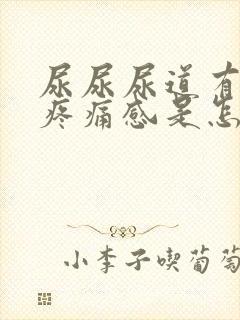 尿尿尿道有
疼痛感是怎
小李子喫葡萄